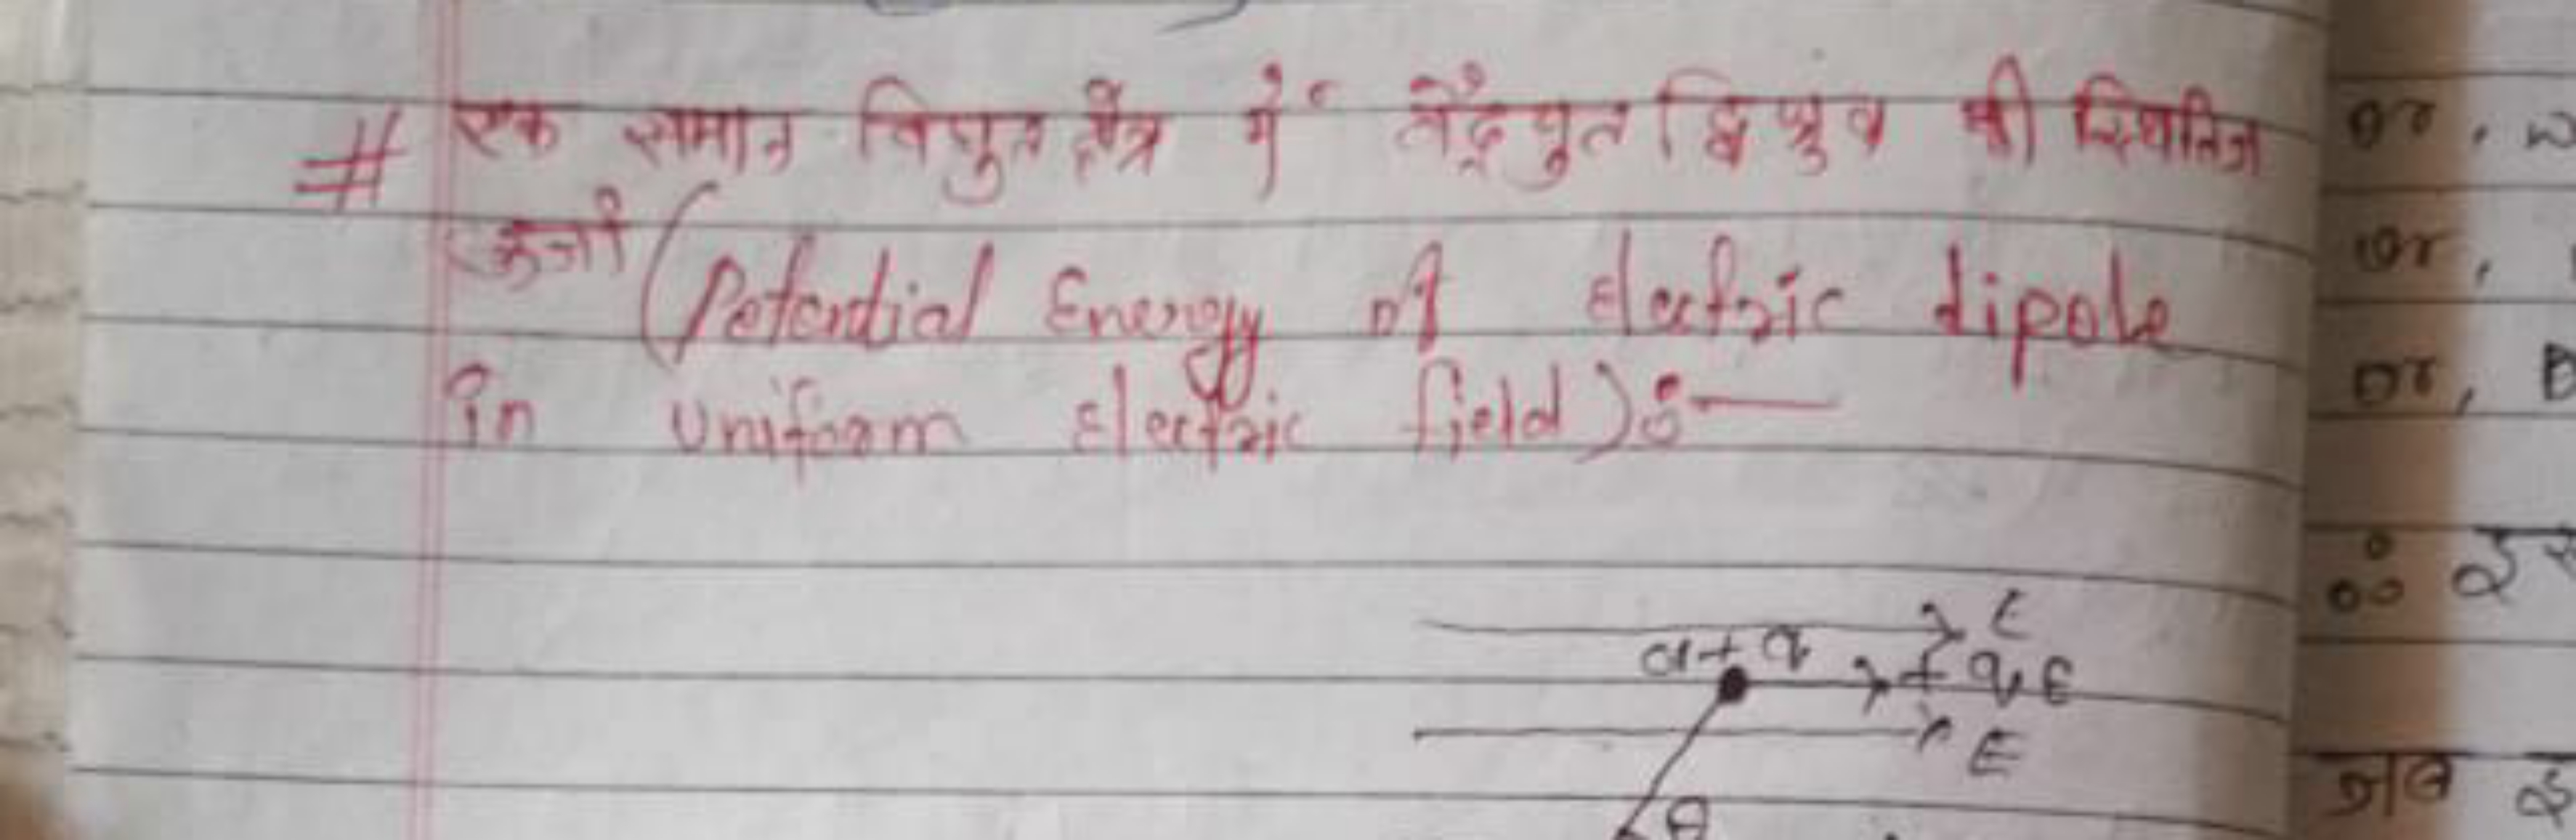 # एक समान विद्युत क्षेत्र में वैद्युत द्विध्रुव की स्थितिज
ऊर्जा (Potential Energy of electric dipole
in uniform electric field):—
E
a+q +qE
E
θ
or,
or,
or, B
जब